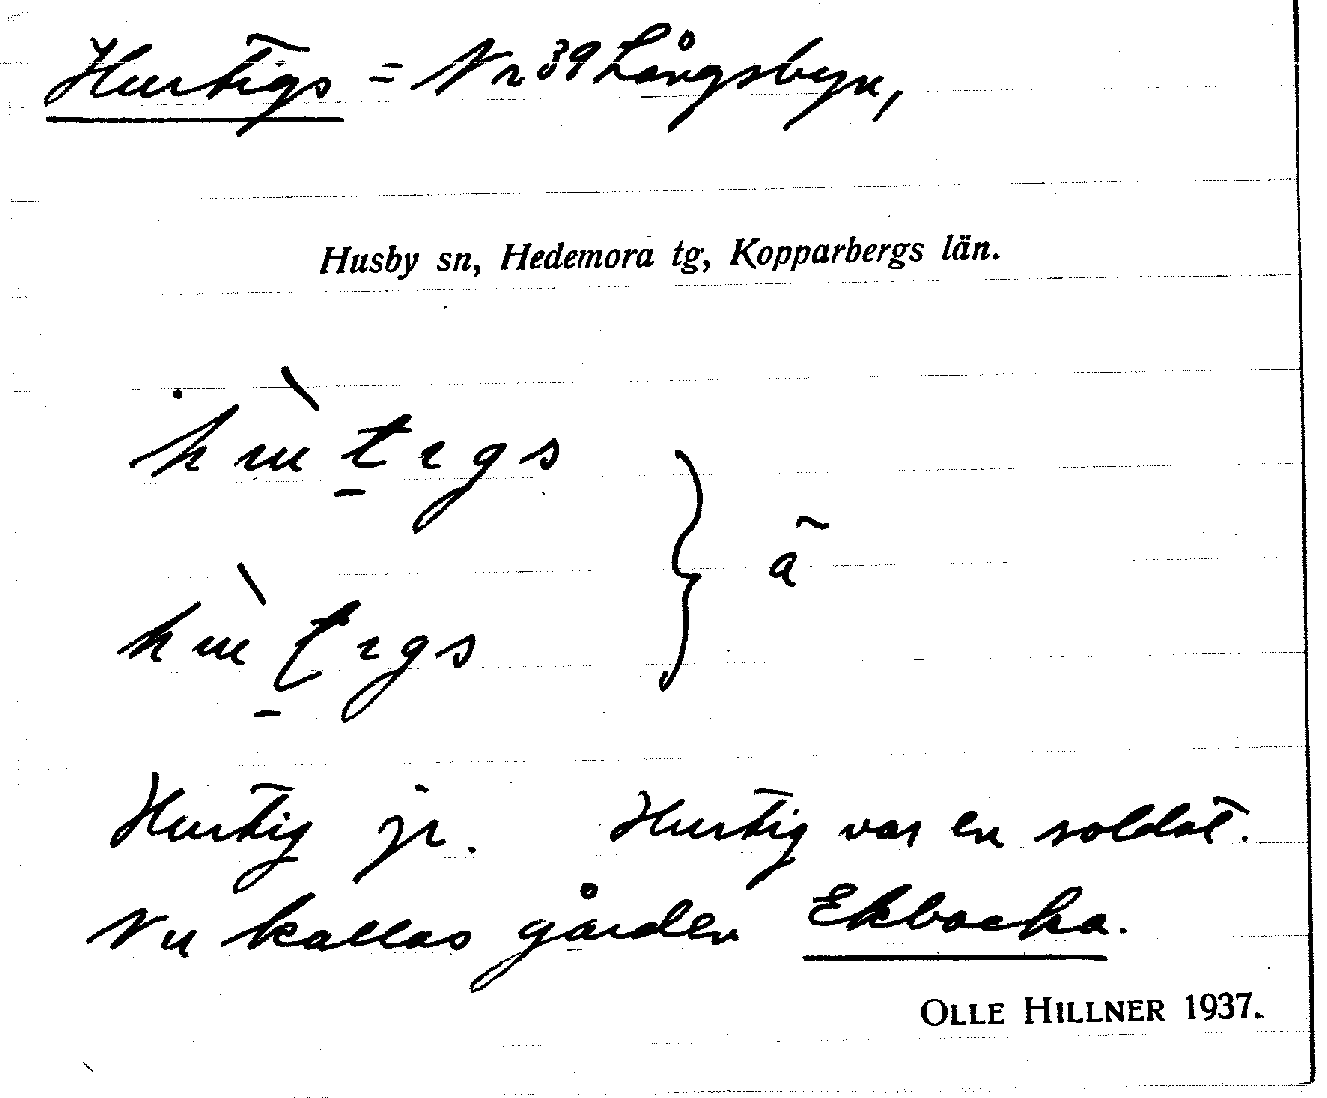 Hurtigs = Nr 39 Långsbyn,
Husby sn, Hedemora tg, Kopparbergs län.
ã
Hurtig jr. Hurtig var en soldat.
Nu kallas gården Ekbacka.
OLLE HILLNER 1937.